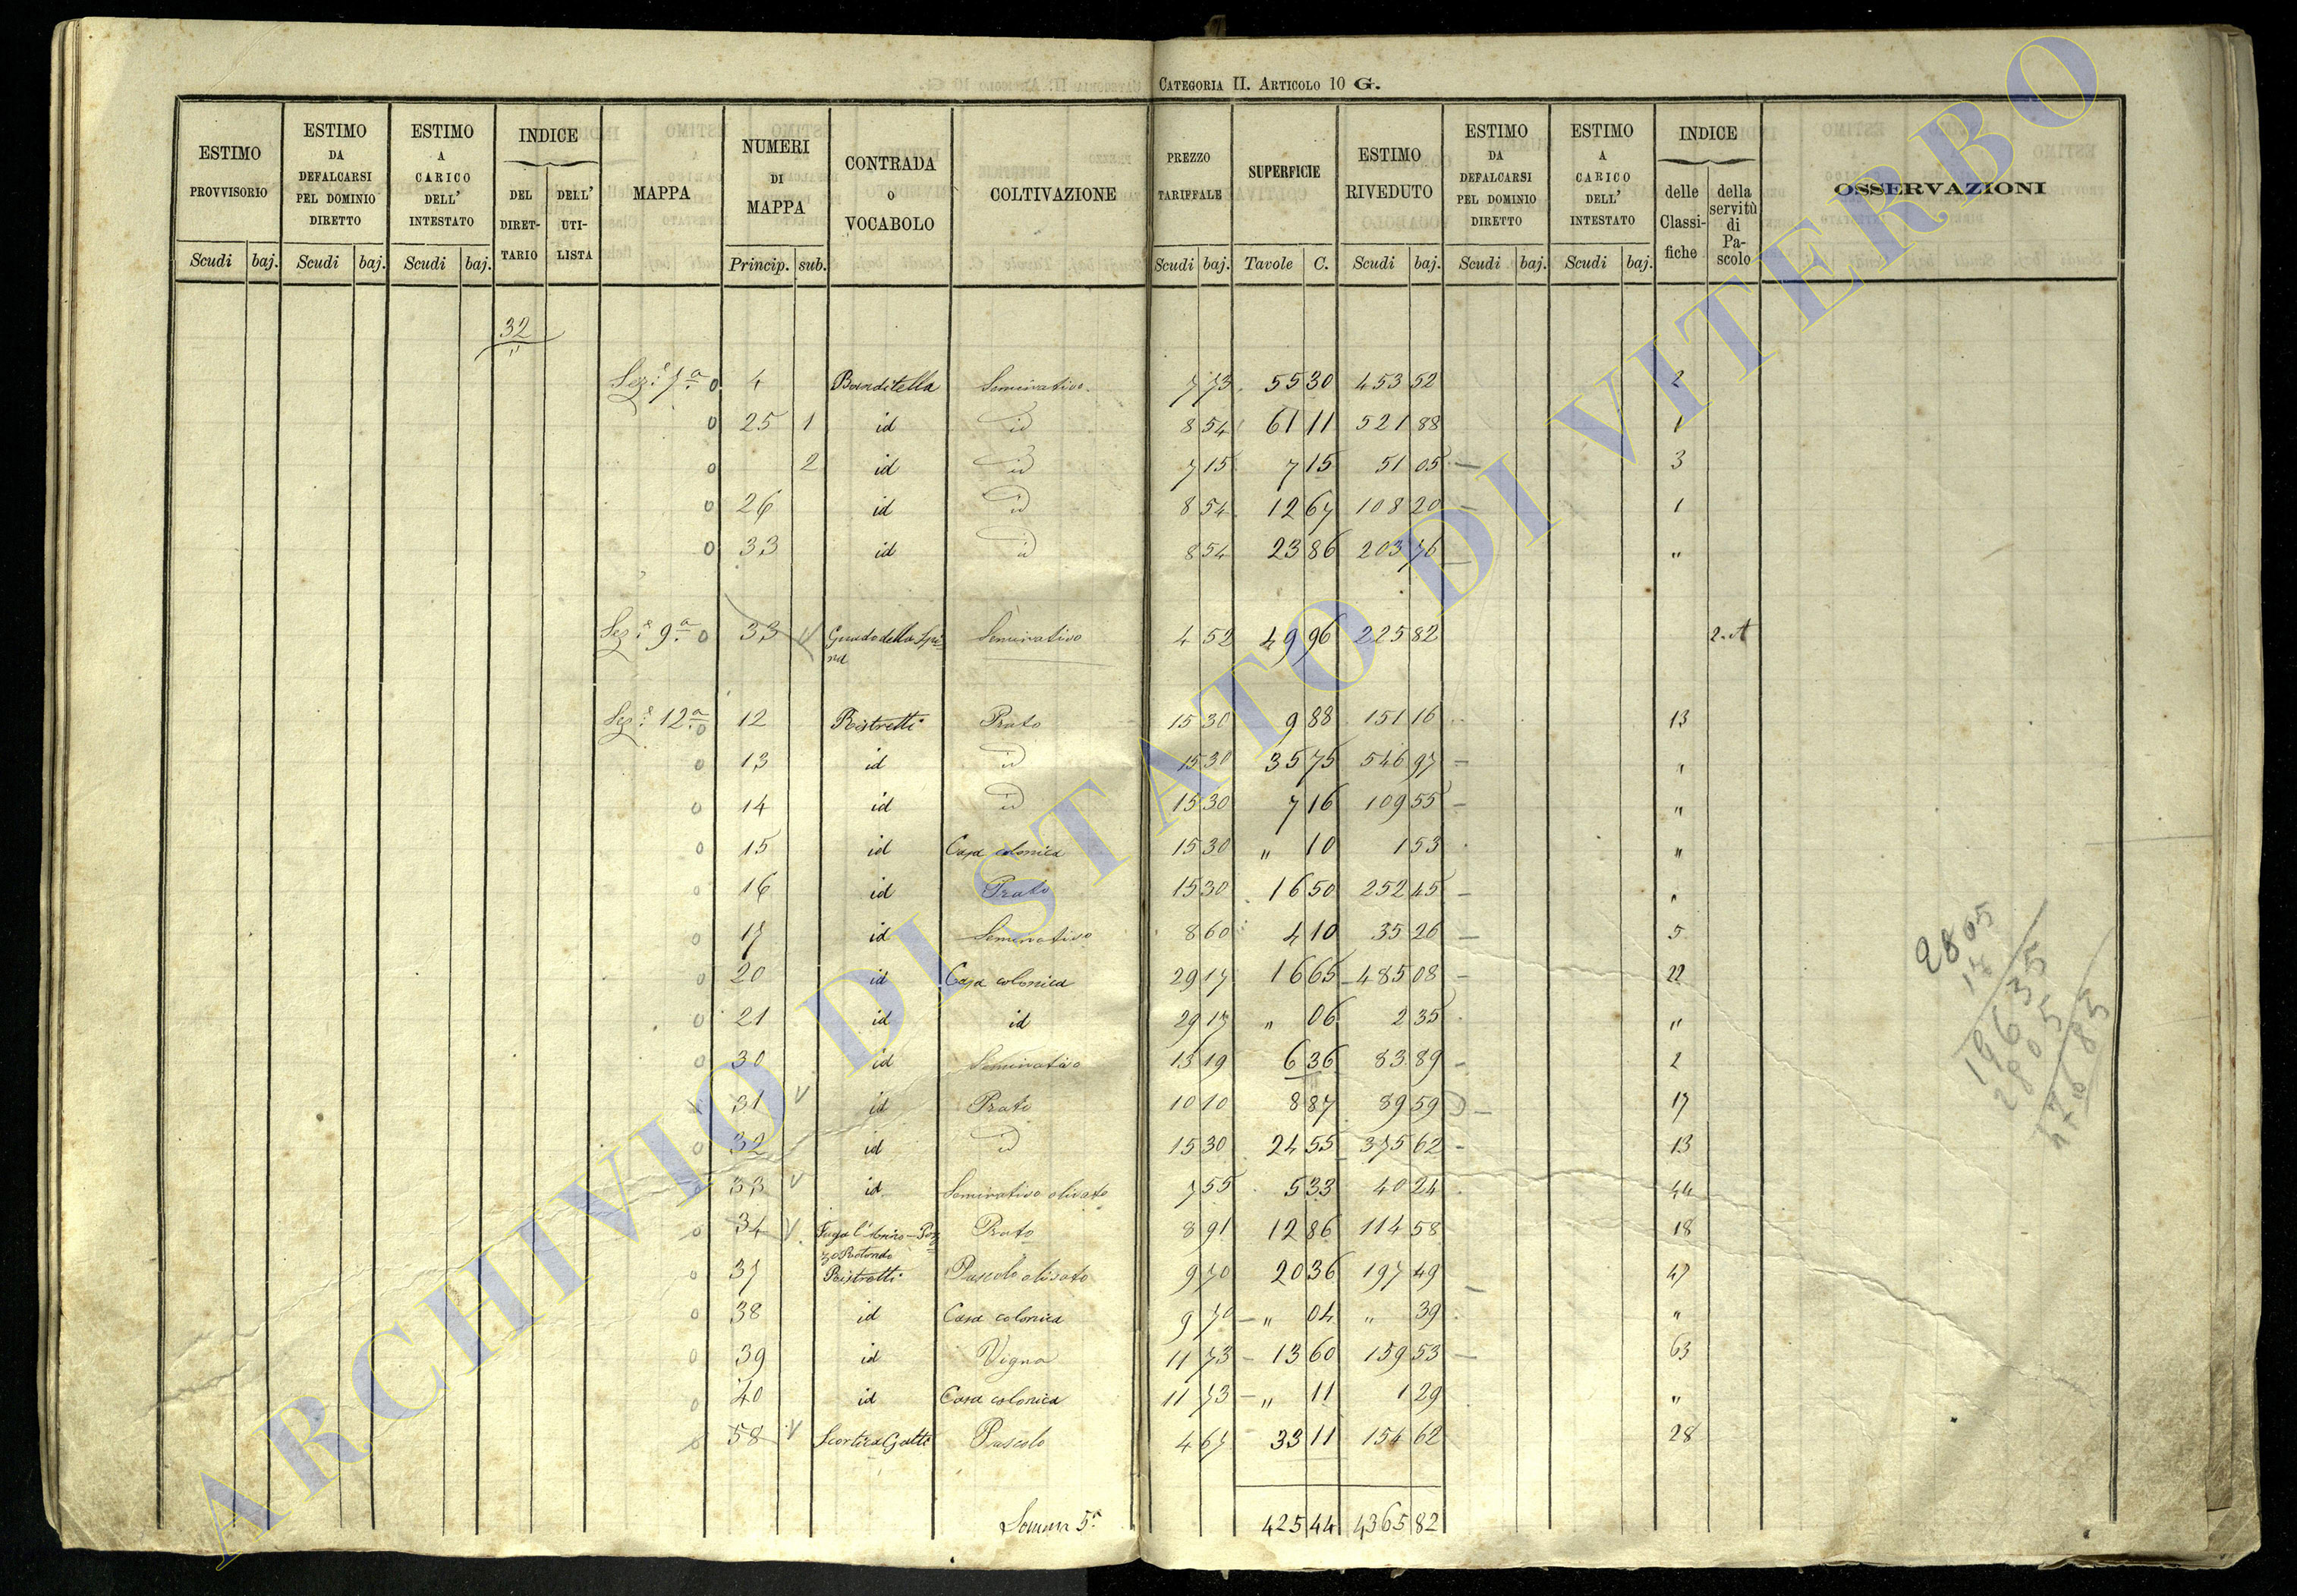 CATEGORIA II. ARTICOLO 10 G.
ESTIMO PROVVISORIO | ESTIMO DA DEFALCARSI PEL DOMINIO DIRETTO | ESTIMO A CARICO DELL' INTESTATO | INDICE DEL DIRET-TARIO | DELL' UTI-LISTA | MAPPA | NUMERI DI MAPPA | CONTRADA o VOCABOLO | COLTIVAZIONE | PREZZO TARIFFALE | SUPERFICIE | ESTIMO RIVEDUTO | ESTIMO DA DEFALCARSI PEL DOMINIO DIRETTO | ESTIMO A CARICO DELL' INTESTATO | INDICE delle Classi-fiche | della servitù di Pa-scolo | OSSERVAZIONI
Scudi | baj. | Scudi | baj. | Scudi | baj. | Princip. | sub. | Scudi | baj. | Tavole | C. | Scudi | baj. | Scudi | baj. | Scudi | baj.
32
"
Sez.e 7.a o 4 Banditella Seminativo 7 73 55 30 453 52 2
o 25 1 id id 8 54 61 11 521 88 1
o 2 id id 7 15 7 15 51 05 3
o 26 id id 8 54 12 67 108 20 1
o 33 id id 8 54 23 86 203 76 "
Sez.e 9.a o 33 Guado della Spi-na Seminativo 4 52 49 96 225 82 2.A
Sez.e 12.a o 12 Ristretti Prato 15 30 9 88 151 16 13
o 13 id id 15 30 35 75 546 97 "
o 14 id id 15 30 7 16 109 55 "
o 15 id Casa colonica 15 30 " 10 1 53 "
o 16 id Prato 15 30 16 50 252 45 "
o 17 id Seminativo 8 60 4 10 35 26 5
o 20 id Casa colonica 29 17 16 65 485 08 22
o 21 id id 29 17 " 06 2 35 "
o 30 id Seminativo 13 19 6 36 83 89 2
o 31 V id Prato 10 10 8 87 89 59 17
o 32 id id 15 30 24 55 375 62 13
o 33 V id Seminativo olivato 7 55 5 33 40 24 44
o 34 V Prato 8 91 12 86 114 58 18
o 37 Ristretti Pascolo olivato 9 70 20 36 197 49 47
o 38 id Casa colonica 9 70 " 04 " 39 "
o 39 id Vigna 11 73 13 60 159 53 63
o 40 id Casa colonica 11 73 " 11 1 29 "
o 58 V Scortica Gatti Pascolo 4 67 33 11 154 62 28
Somma 5.a 425 44 4365 82
2805
19635
2805
47685
ARCHIVIO DI STATO DI VITERBO